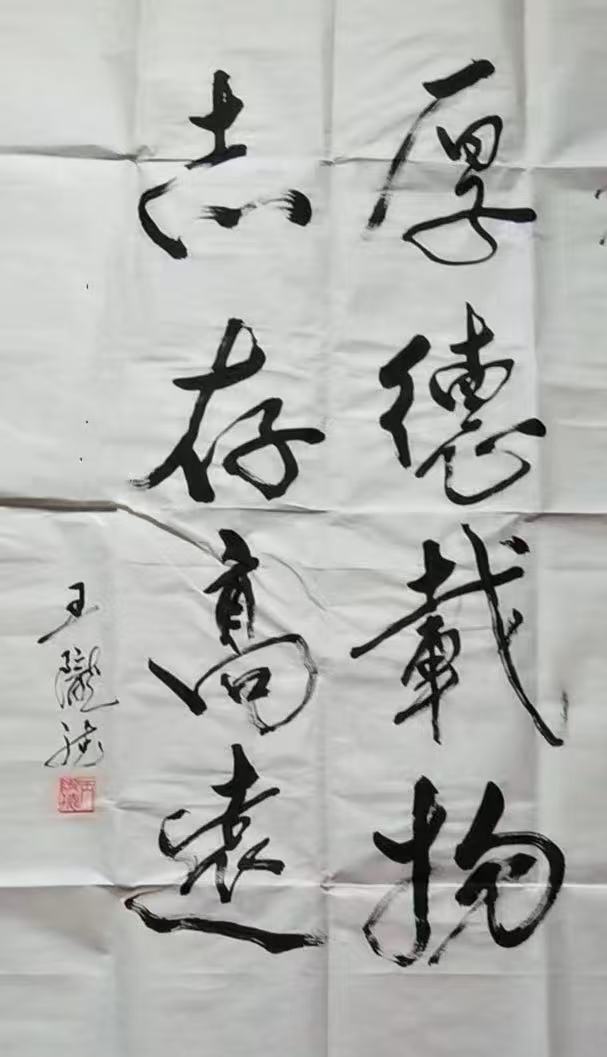 厚德载物
志存高遠
王陇